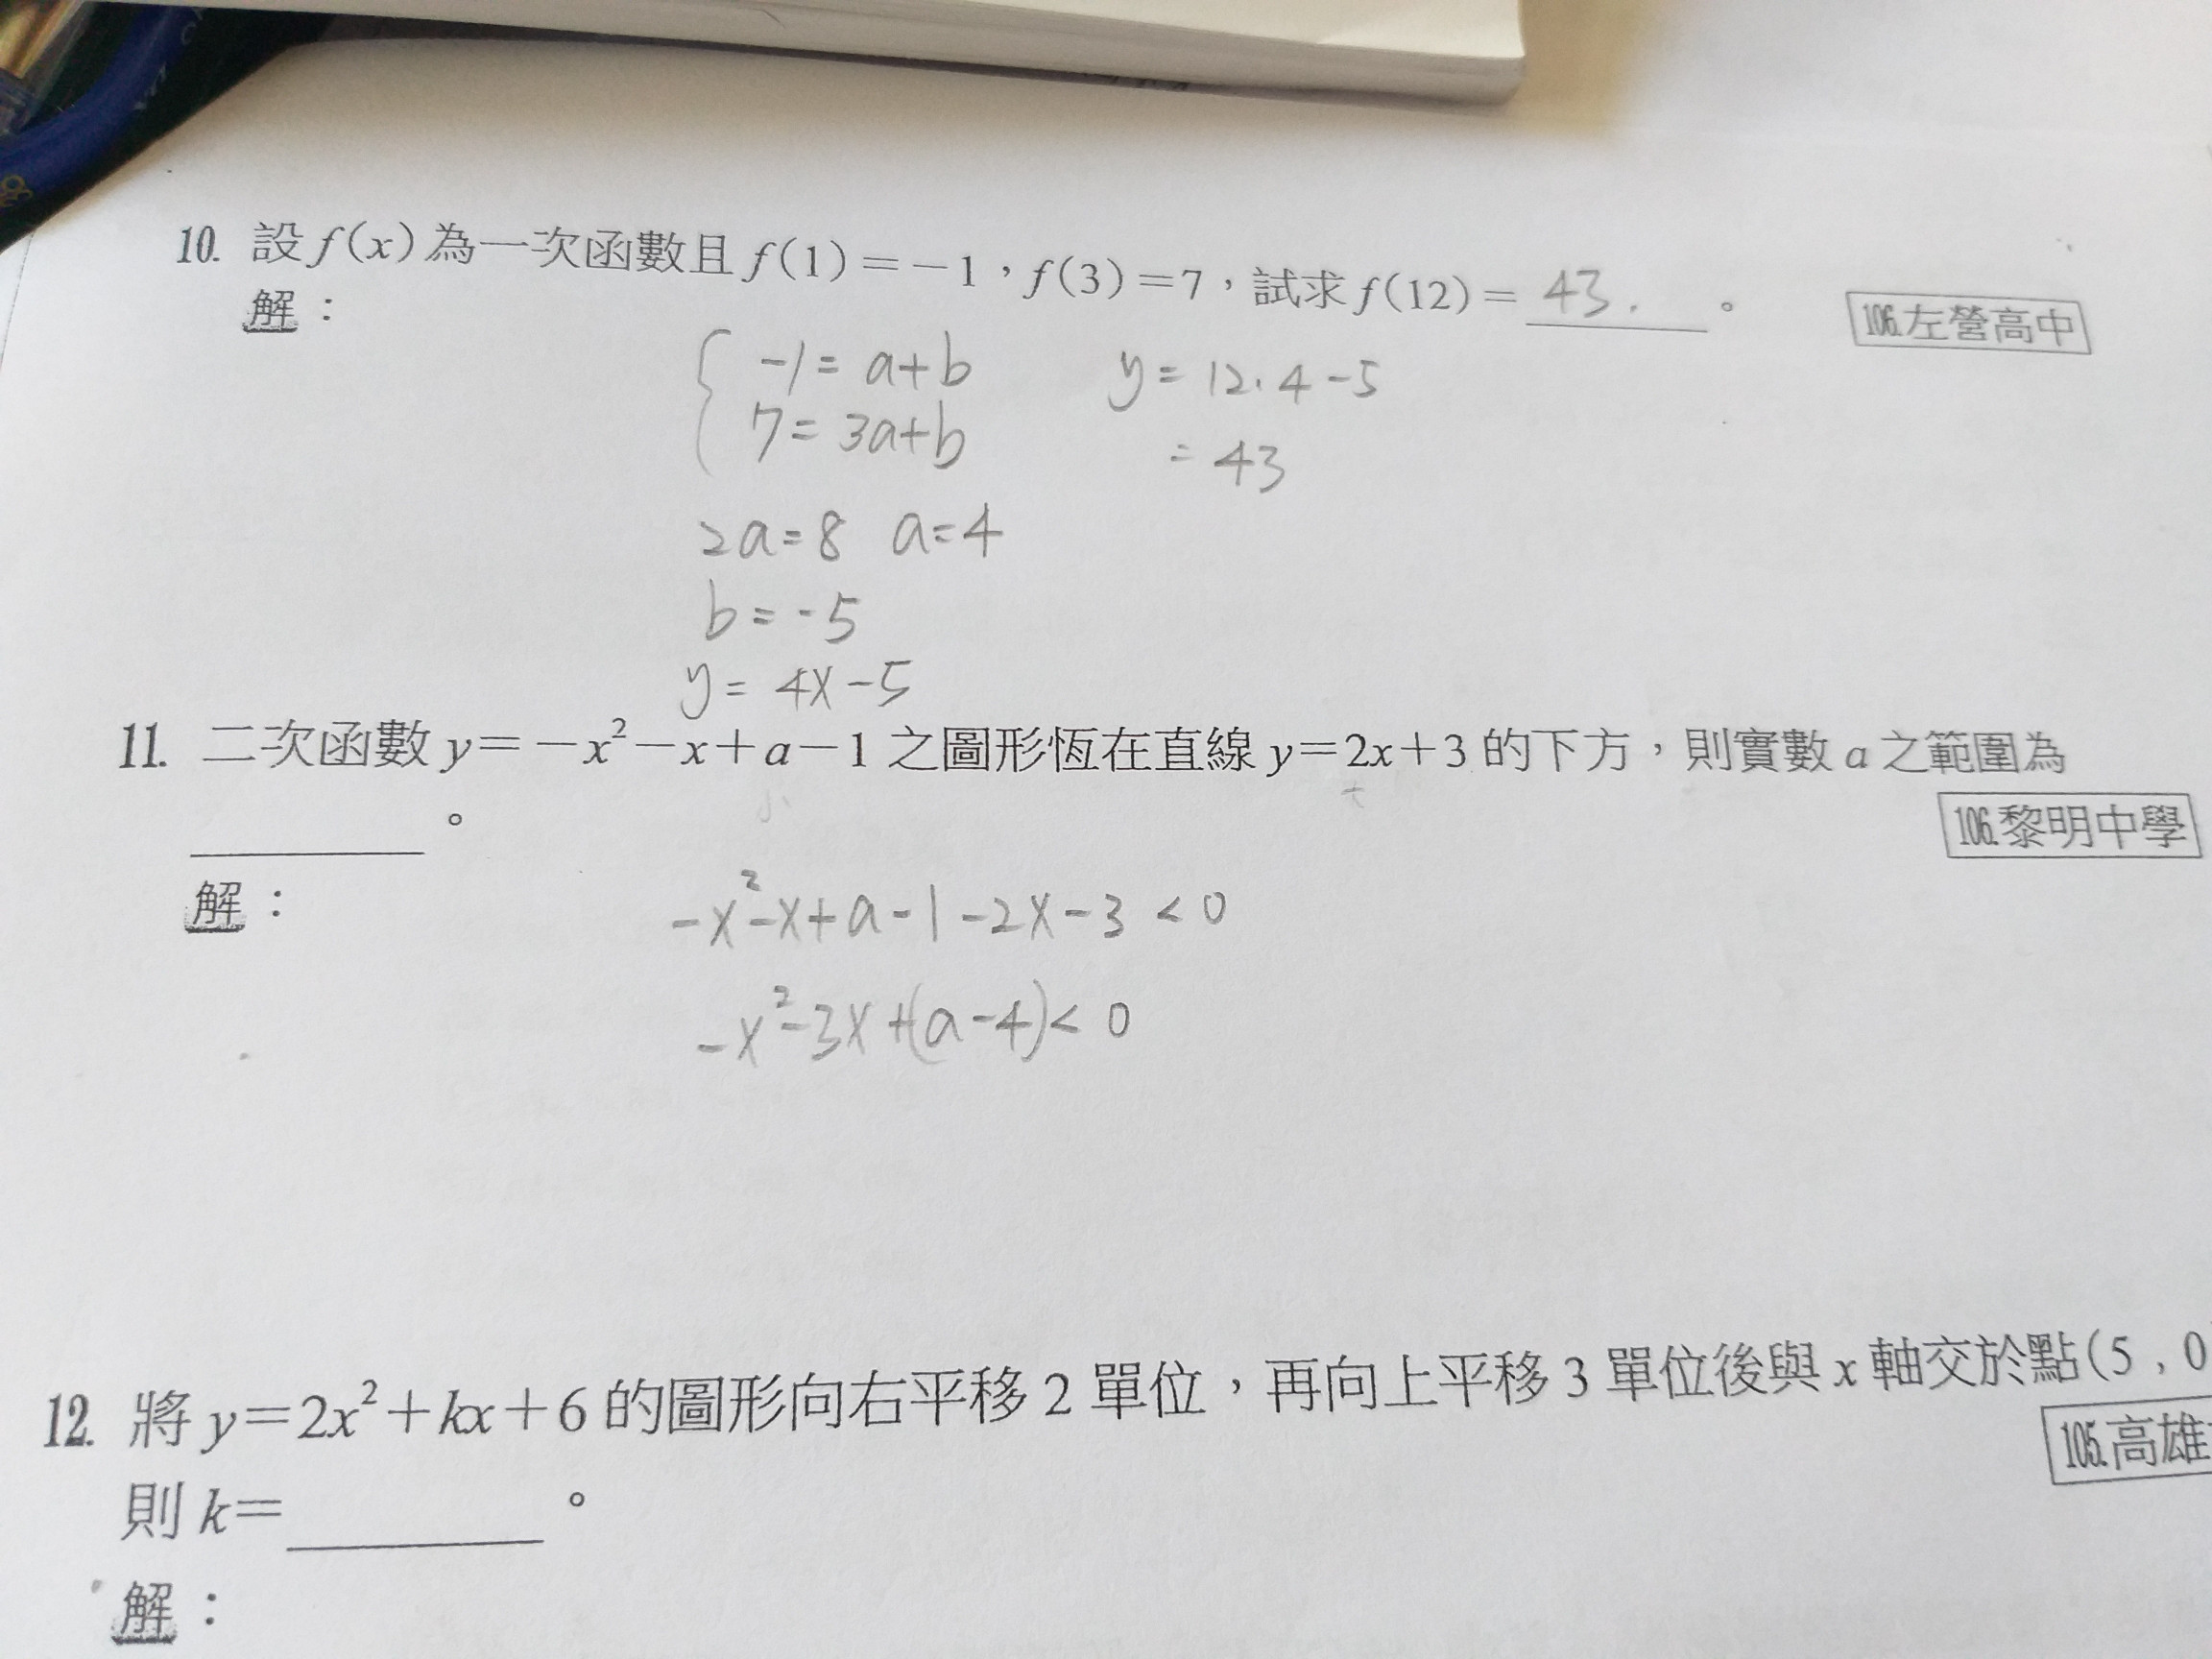 10. 設 f(x) 為一次函數且 f(1)=-1，f(3)=7，試求 f(12)= 43. 。
106.左營高中
解：
{ -1 = a+b
7 = 3a+b
y = 12.4-5
= 43
2a=8 a=4
b=-5
y = 4x-5
11. 二次函數 y=-x²-x+a-1 之圖形恆在直線 y=2x+3 的下方，則實數 a 之範圍為
小 大
。
106.黎明中學
解：
-x²-x+a-1-2x-3 < 0
-x²-3x+(a-4) < 0
12. 將 y=2x²+kx+6 的圖形向右平移 2 單位，再向上平移 3 單位後與 x 軸交於點(5 , 0
105.高雄
則 k= 。
解：